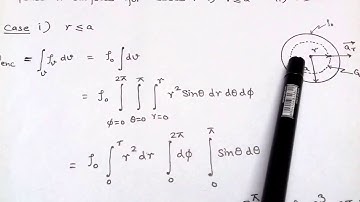 case i) r ≤ a
enc = ∫ᵥ ρᵥ dv = ρ₀ ∫ dv
= ρ₀ ∫_{ϕ=0}^{2π} ∫_{θ=0}^{π} ∫_{r=0}^{r} r² Sinθ dr dθ dϕ
= ρ₀ ∫_0^r r² dr ∫_0^{2π} dϕ ∫_0^π Sinθ dθ
ρ₀
r
a_r
a